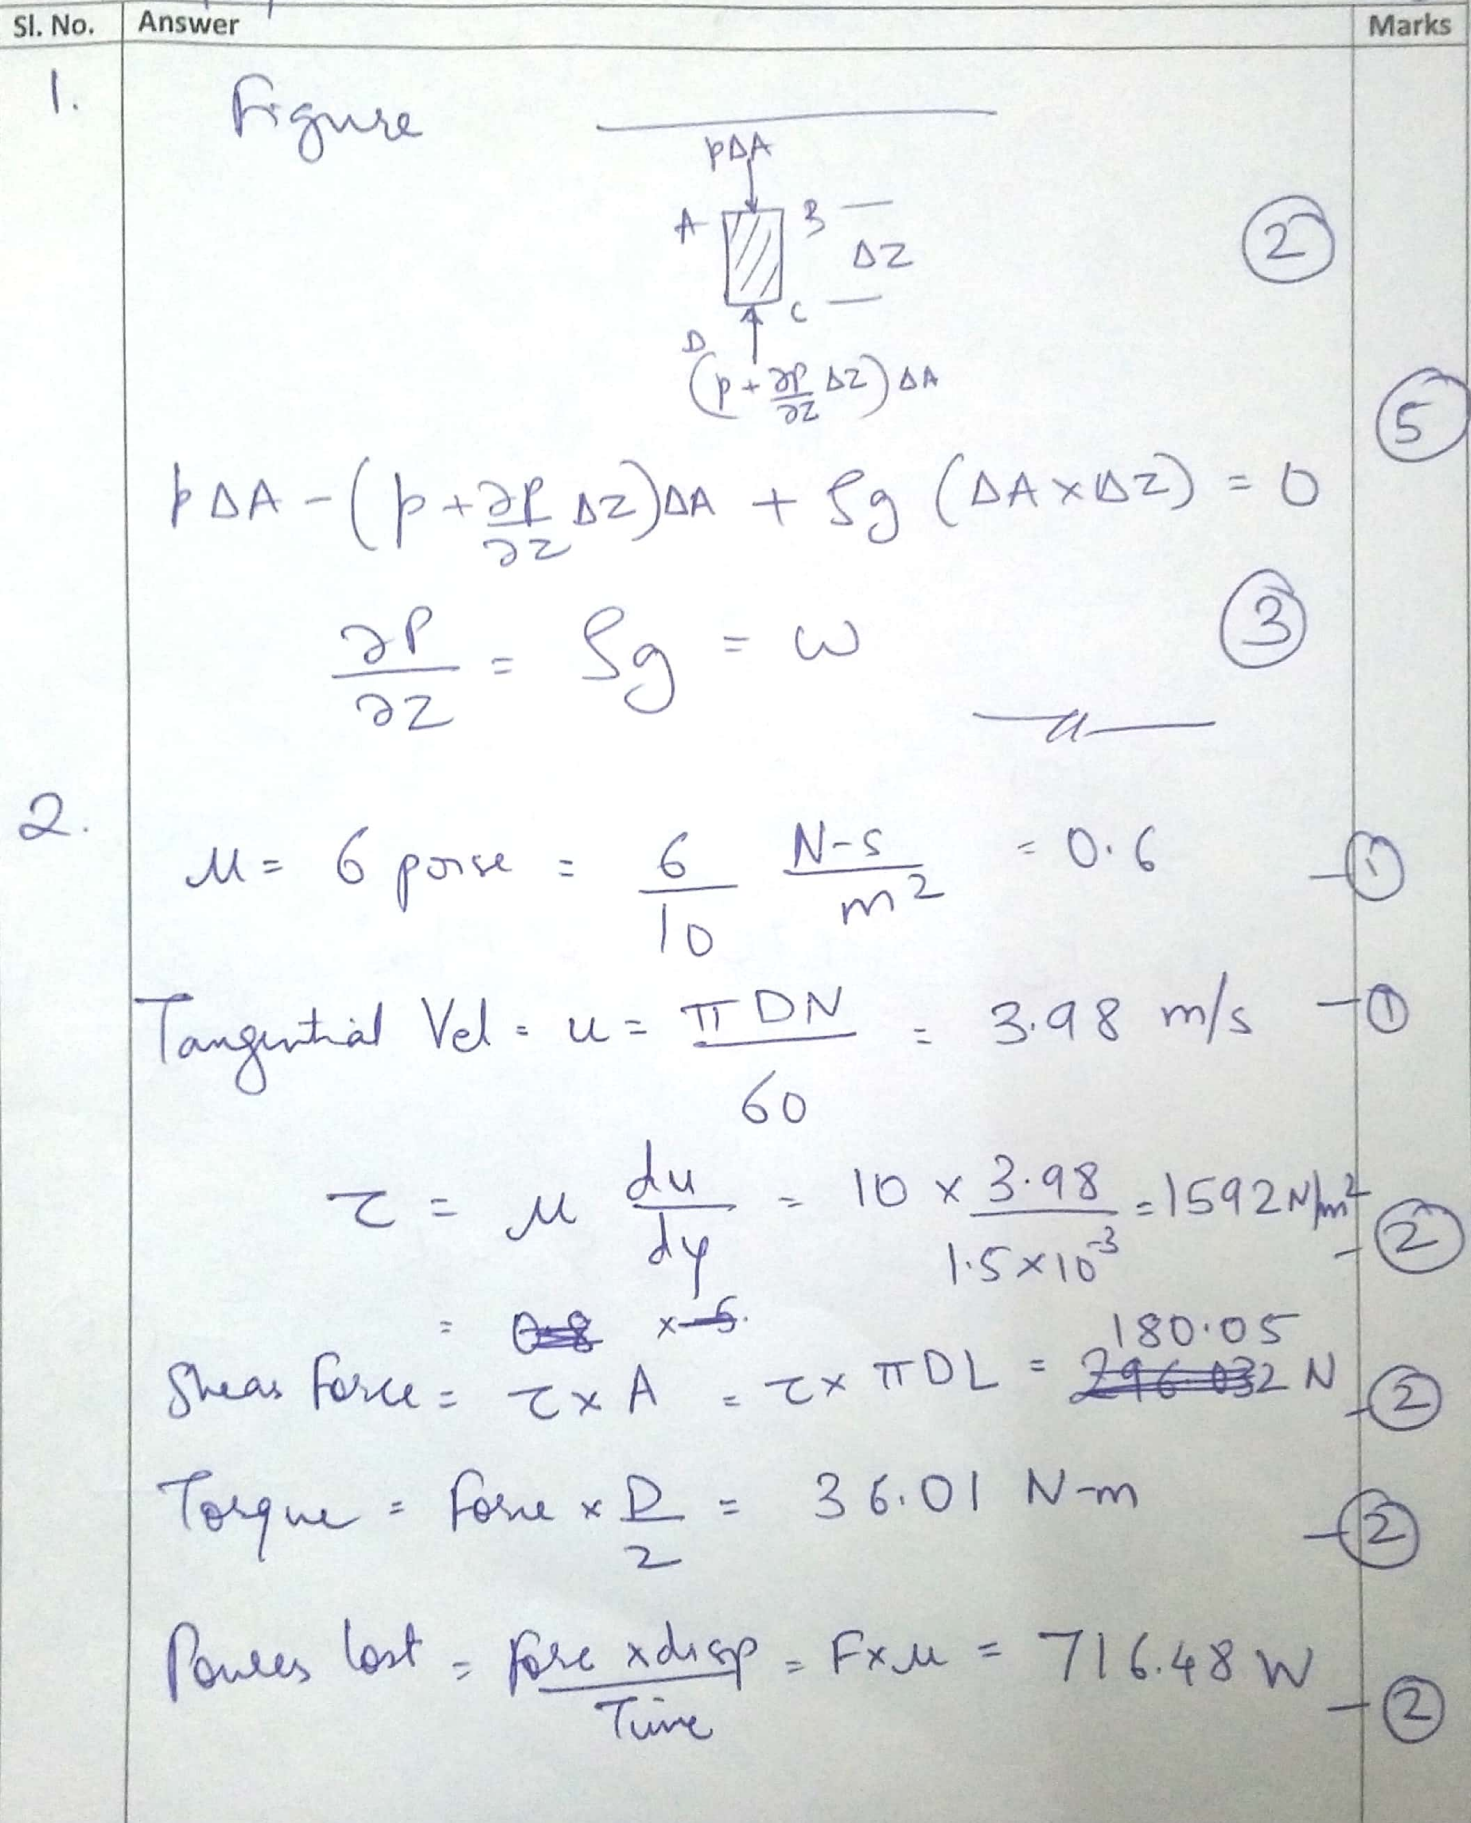 Sl. No. Answer Marks
1. Figure
pΔA
A B
ΔZ
②
D C
(p + ∂P/∂Z ΔZ) ΔA
⑤
pΔA - (p + ∂P/∂Z ΔZ)ΔA + ρg (ΔA × ΔZ) = 0
∂P/∂Z = ρg = w ③
2.
μ = 6 poise = 6/10 N-s/m² = 0.6 - ①
Tangential Vel = u = πDN/60 = 3.98 m/s - ①
τ = μ du/dy = 10 × 3.98/1.5×10⁻³ = 1592 N/m² - ②
= 0.8 × 5.
180.05
Shear force = τ × A = τ × πDL = 296.032 N - ②
Torque = Force × D/2 = 36.01 N-m - ②
Power lost = Force × disp/Time = F × u = 716.48 W - ②